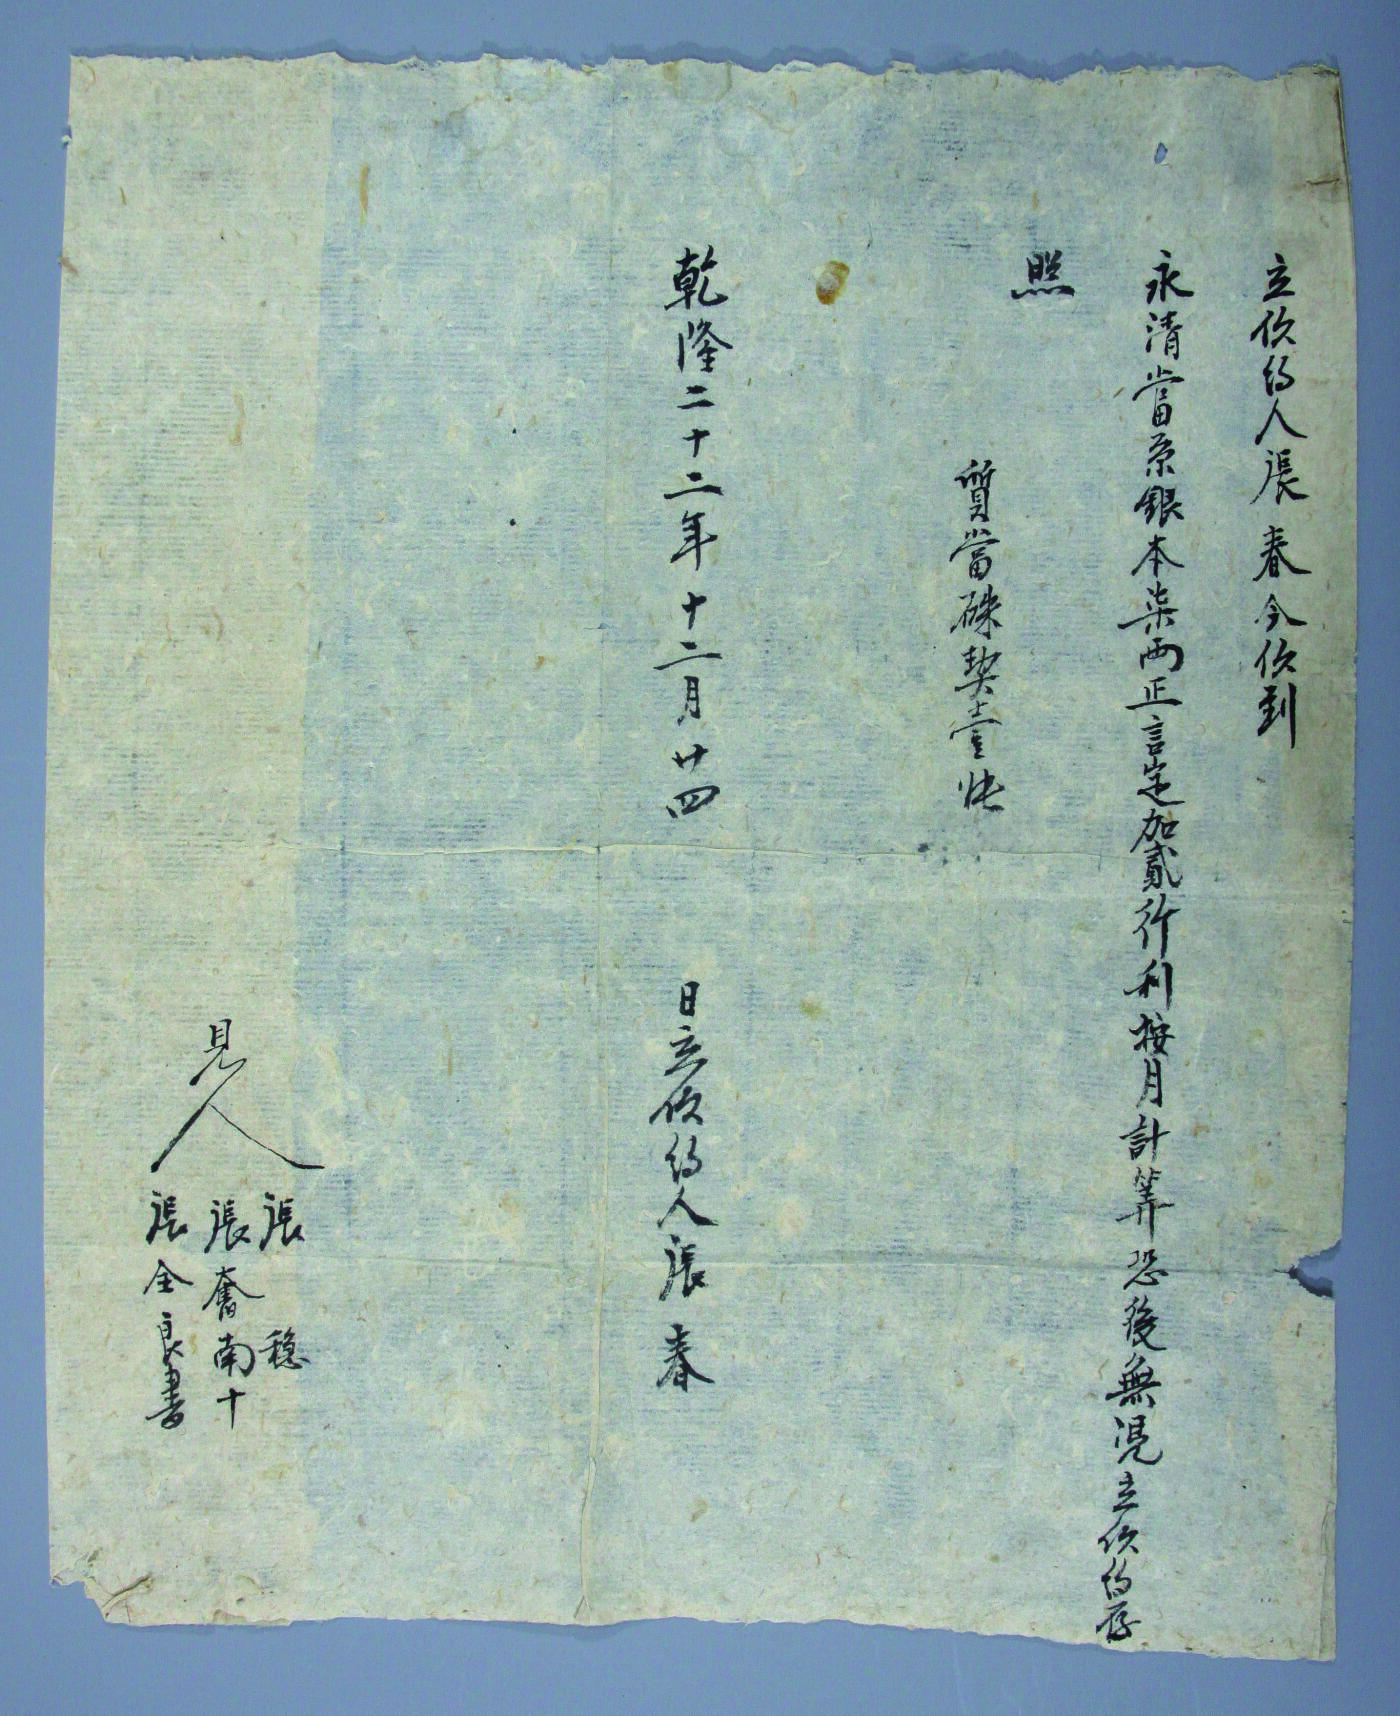 立佽約人張春今佽到
永清當原銀本柒兩正言定加貳行利按月計算恐後無凴立佽約存
照
質當硃契壹帋
乾隆二十二年十二月廿四日立佽約人張春
見人
張穏
張奮南十
張全良書